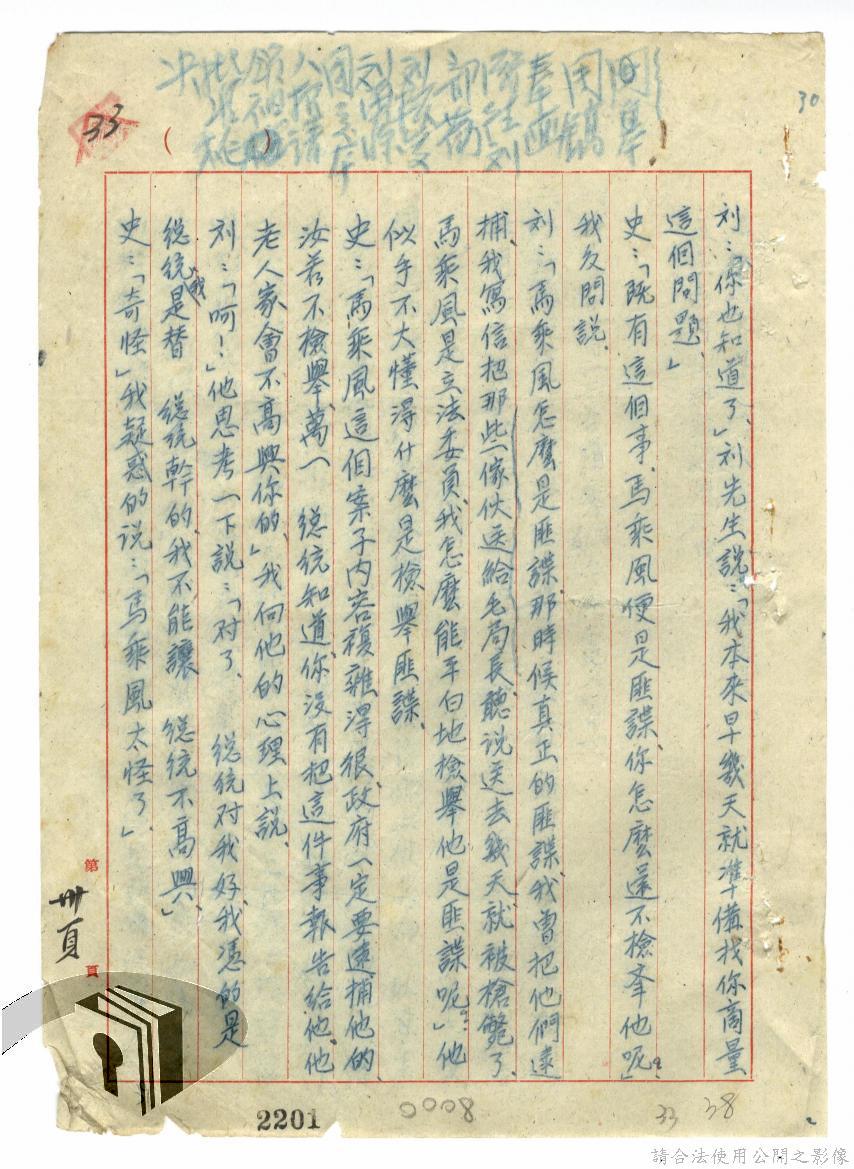 30
33
刘:「你也知道了、」刘先生説:「我本來早幾天就準備找你商量
這個問題、」
史:「既有這個事、馬乘風便是匪諜、你怎麼還不檢举他呢?」
我反問説、
刘:「馬乘風怎麼是匪諜、那時候真正的匪諜、我曾把他們逮
捕、我寫信把那些傢伙送給毛局長、聽说送去幾天就被槍斃了、
馬乘風是立法委員、我怎麼能平白地檢舉他是匪諜呢?」他
似乎不大懂得什麼是檢舉匪諜、
史:「馬乘風這個案子内容複雜得很、政府一定要逮捕他的、
汝若不檢舉、萬一 總統知道你没有把這件事報告給他、他
老人家會不高興你的、」我向他的心理上説、
刘:「呵!」他思考一下説:「对了、 總統对我好、我憑的是
總統、我是替 總統幹的、我不能讓 總統不高興、」
史:「奇怪」我疑惑的说:「馬乘風太怪了、」
第卅頁頁
2201
0008
33 38
請合法使用公開之影像